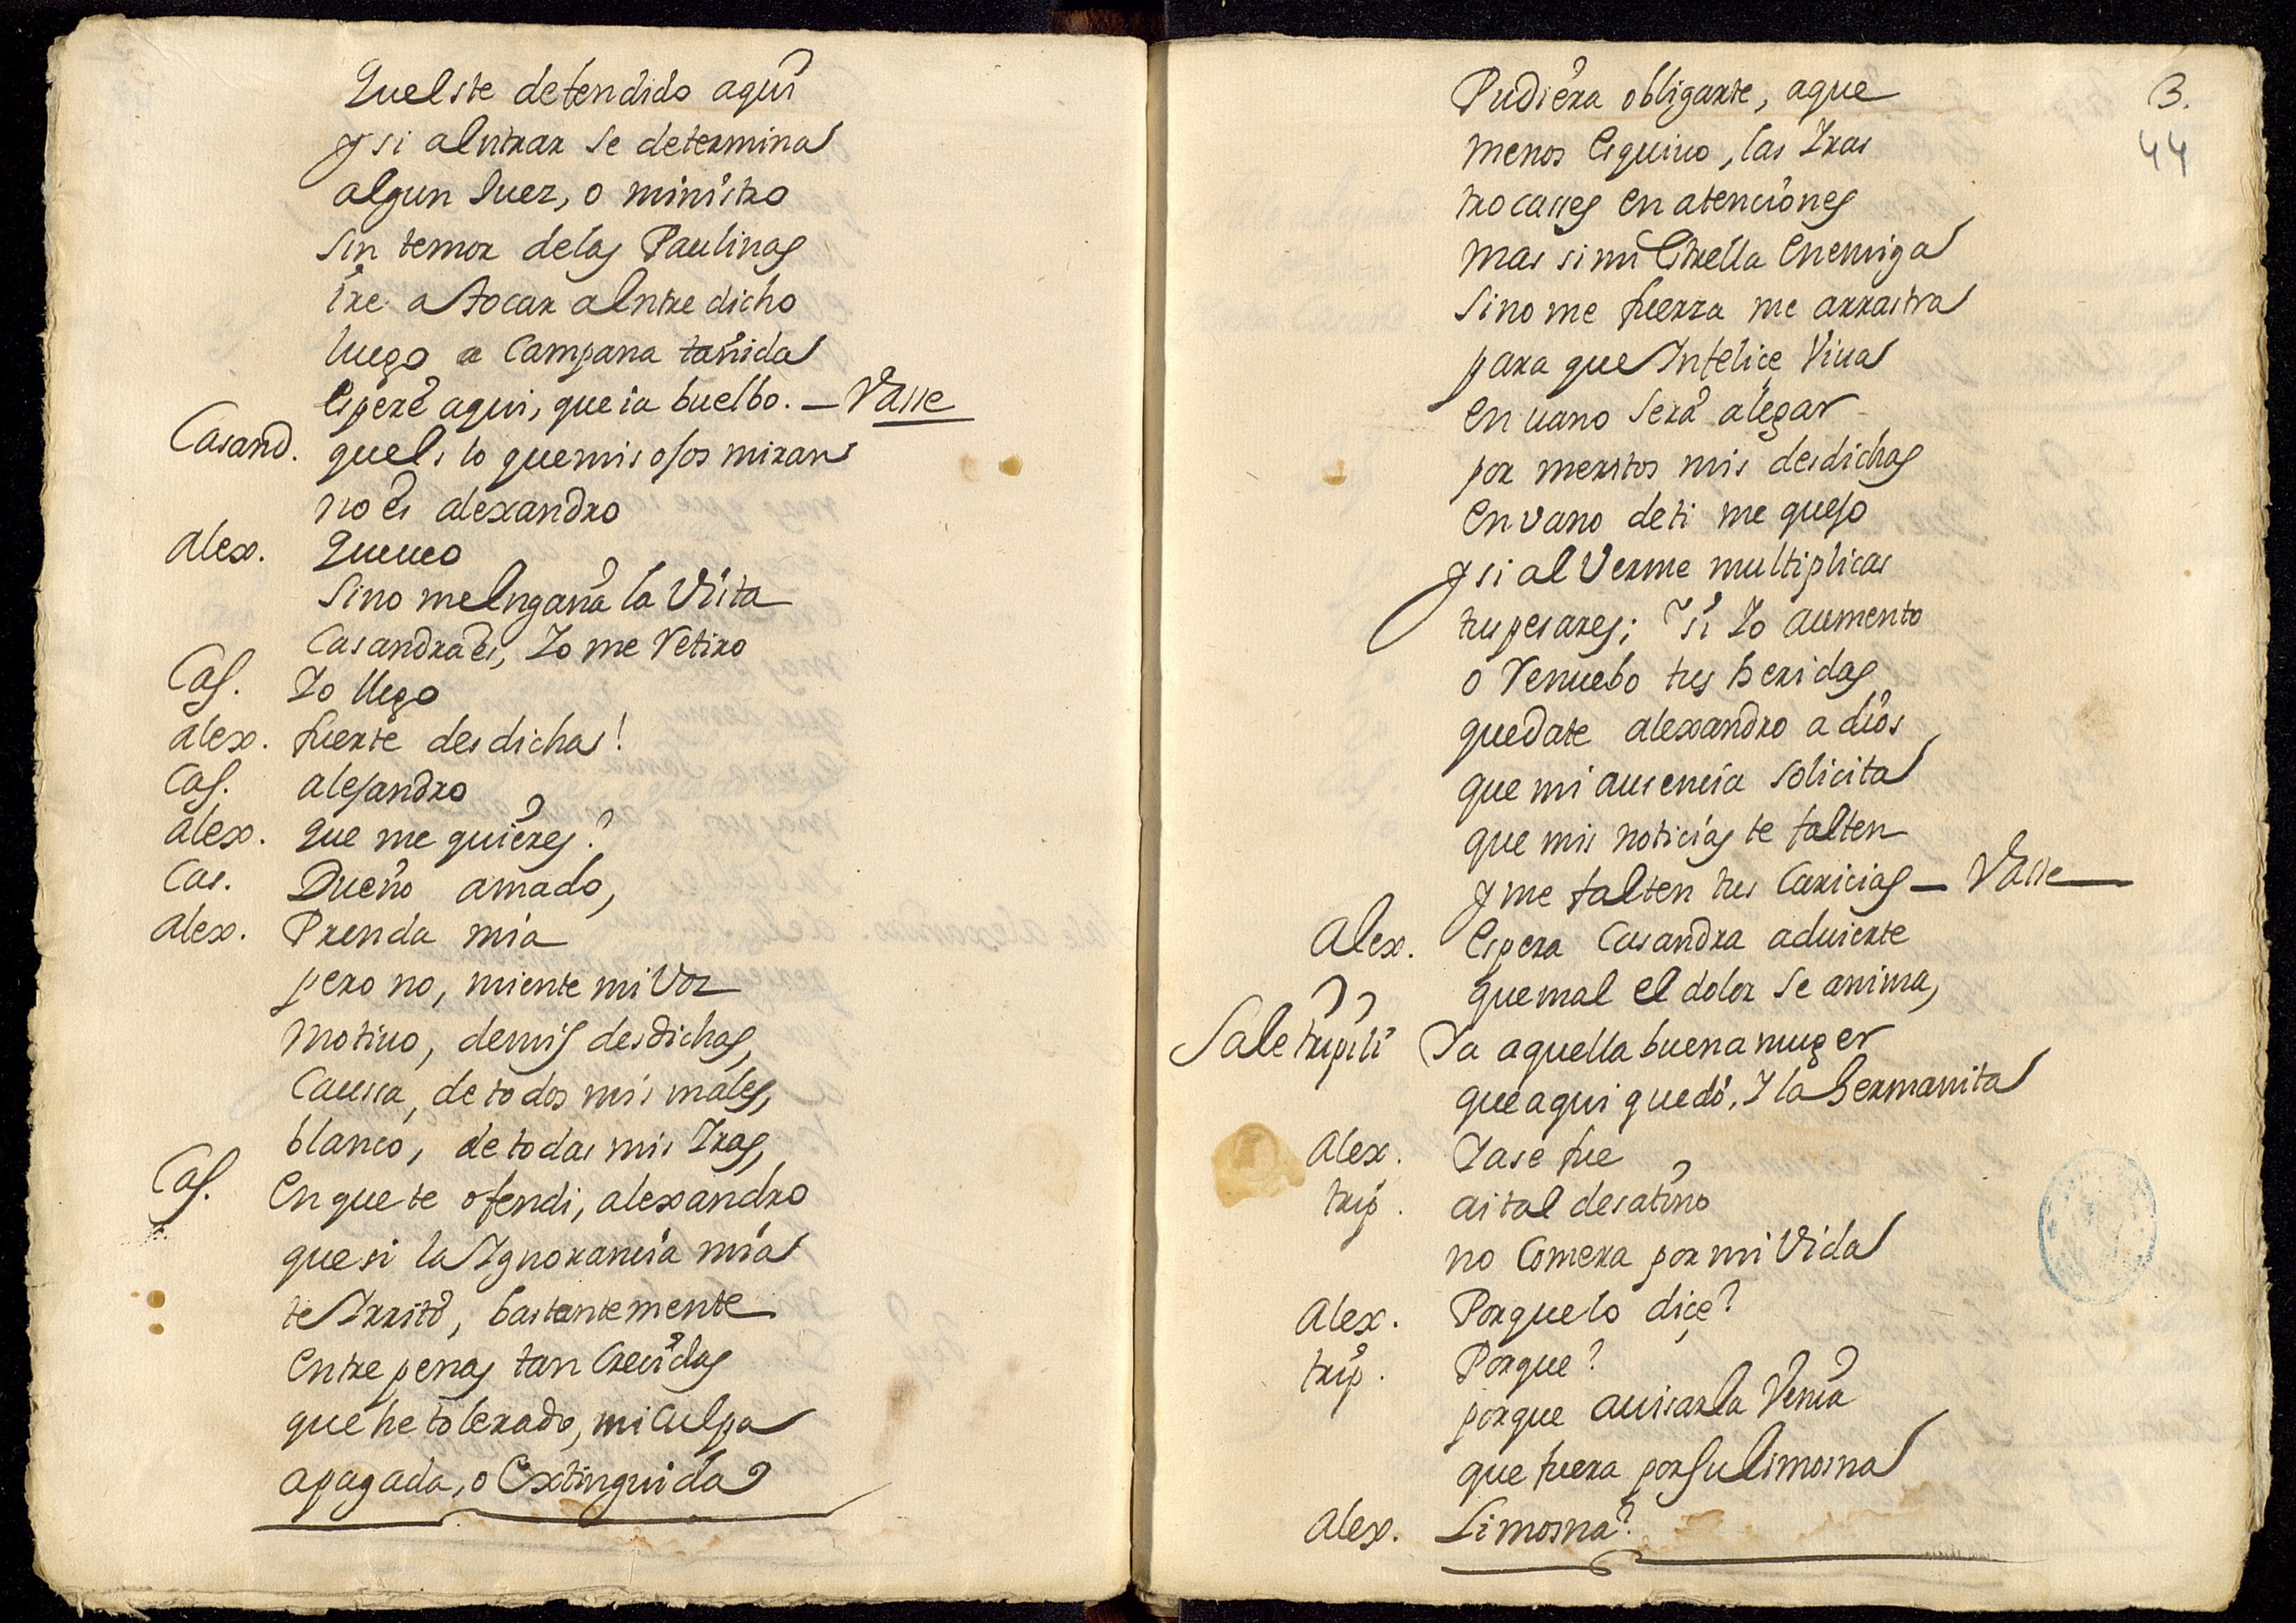 Queeste defendido aqui
y si alentrar se determina
algun Juez, o ministro
sin temor delas Paulinas
ire a tocar alentredicho
luego a Campana tañida
espere aqui, que ia buelbo. — Vasse
Casand. quees lo quemis ojos miran
no es alexandro
alex. Queueo
sino meengaña la Vista
Casandra es, Yo me Retiro
Cas. Yo llego
alex. fuerte desdicha!
Cas. alejandro
alex. que me quieres?
Cas. Dueño amado,
alex. Prenda mia
pero no, miente mi Voz
motiuo, demis desdichas,
Caussa, de todos mis males,
blanco, de todas mis Iras,
Cas. En que te ofendi, alexandro
que si la Ignorancia mia
te Irrito, bastantemente
entre penas tan Crecidas
que he tolerado, mi Culpa
apagada, o Extinguida
3.
44
Pudiera obligarte, aque
menos esquiuo, las Iras
trocasses en atenciones
mas si mi estrella Enemiga
sino me fuerza me arrastra
para que Infelice Viua
en uano sera alegar
por meritos mis desdichas
en vano de ti me quejo
y si al Verme multiplicas
tus pesares; Y si Yo aumento
o Renuebo tus heridas
quedate alexandro a dios
que mi ausencia solicita
que mis noticias te falten
y me falten tus Caricias — Vasse
Alex. espera Casandra aduierte
quemal el dolor se anima,
Sale tripili Ya aquella buena muger
que aqui quedó, Y la hermanita
Alex. Yase fue
trip. ai tal desatino
no Comera por mi Vida
Alex. Porque lo dice?
trip. Porque?
porque auisarla Venia
que fuera por su limosna
Alex. Limosna?